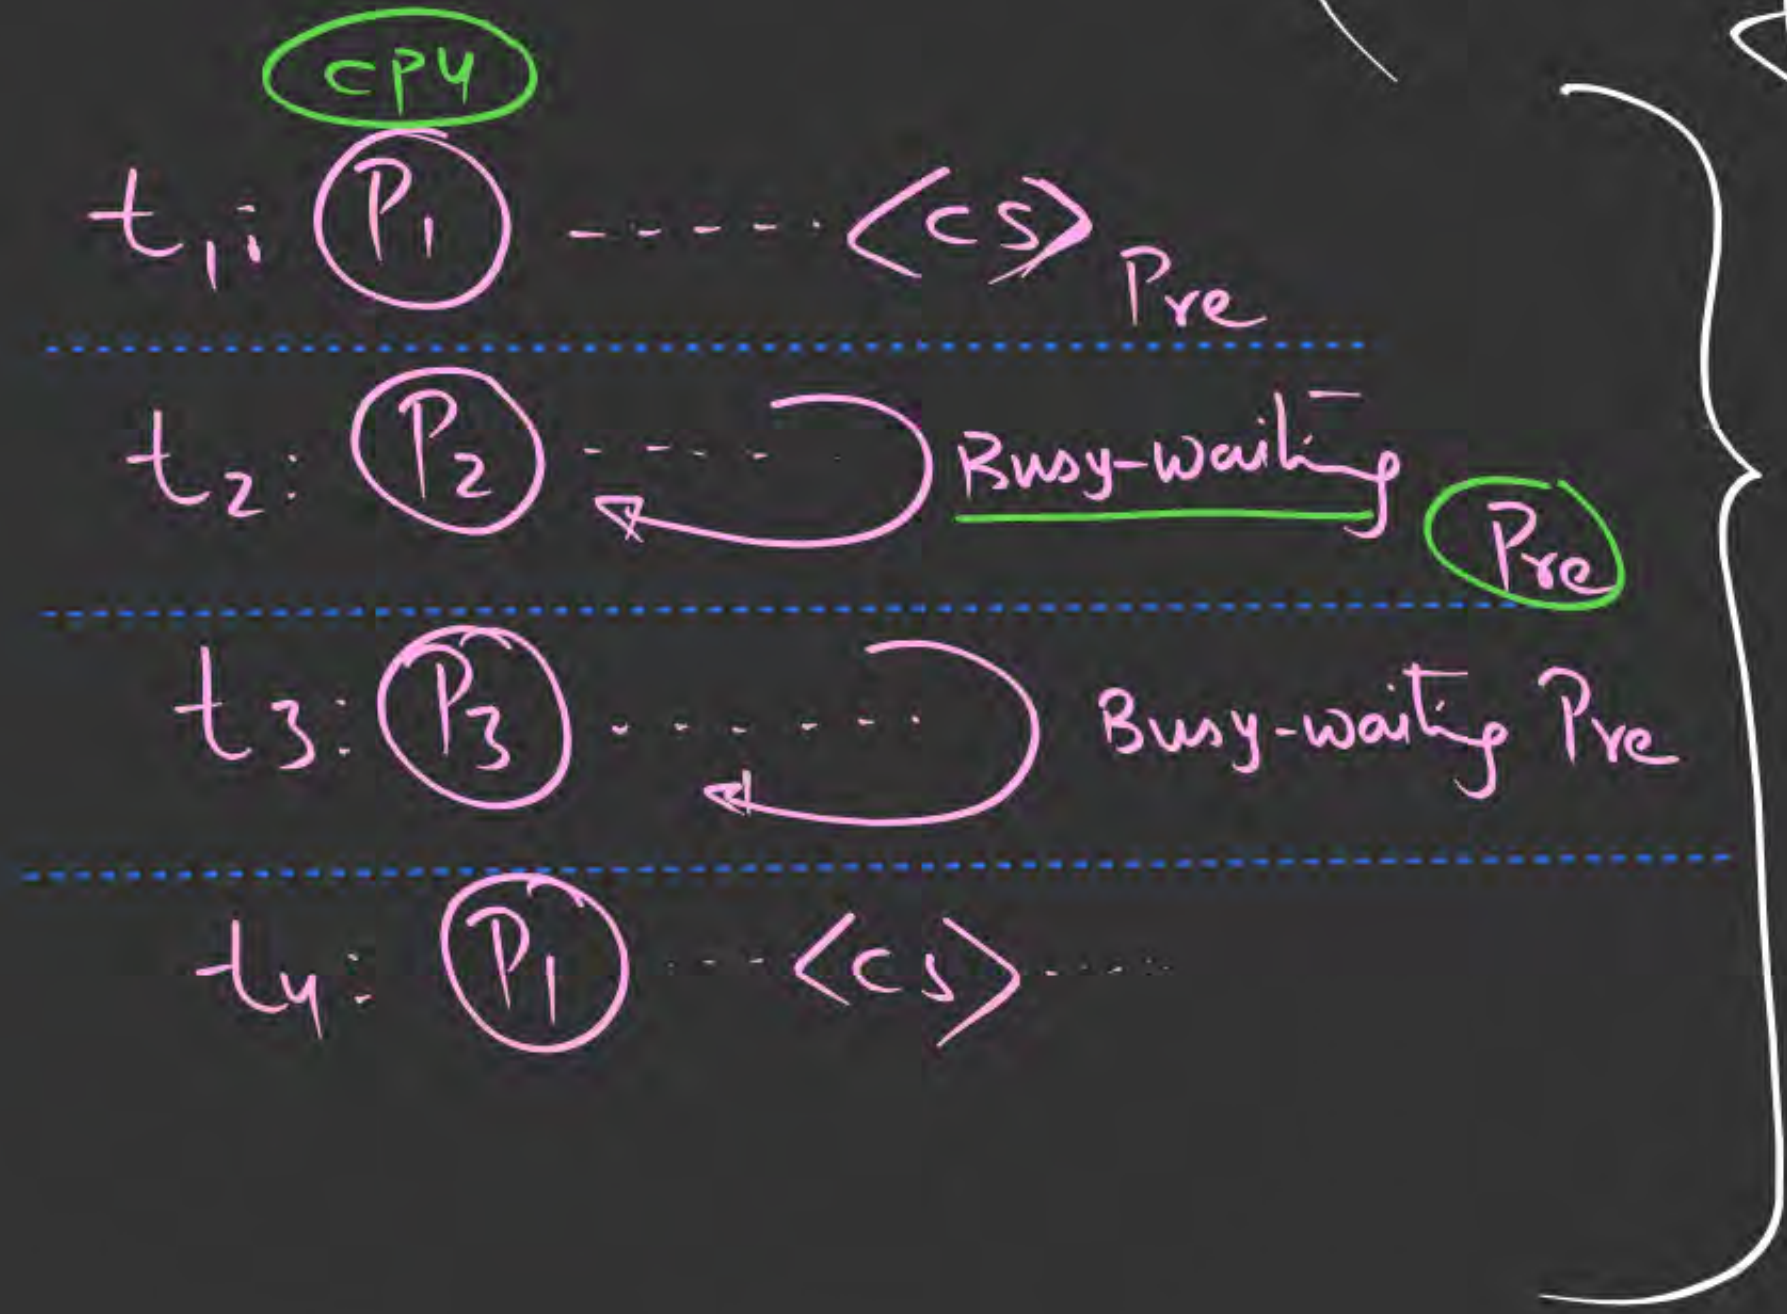 CPU
t1: P1 ------ <CS> Pre
t2: P2 ---- Busy-waiting Pre
t3: P3 ------ Busy-waiting Pre
t4: P1 --- <CS> ----